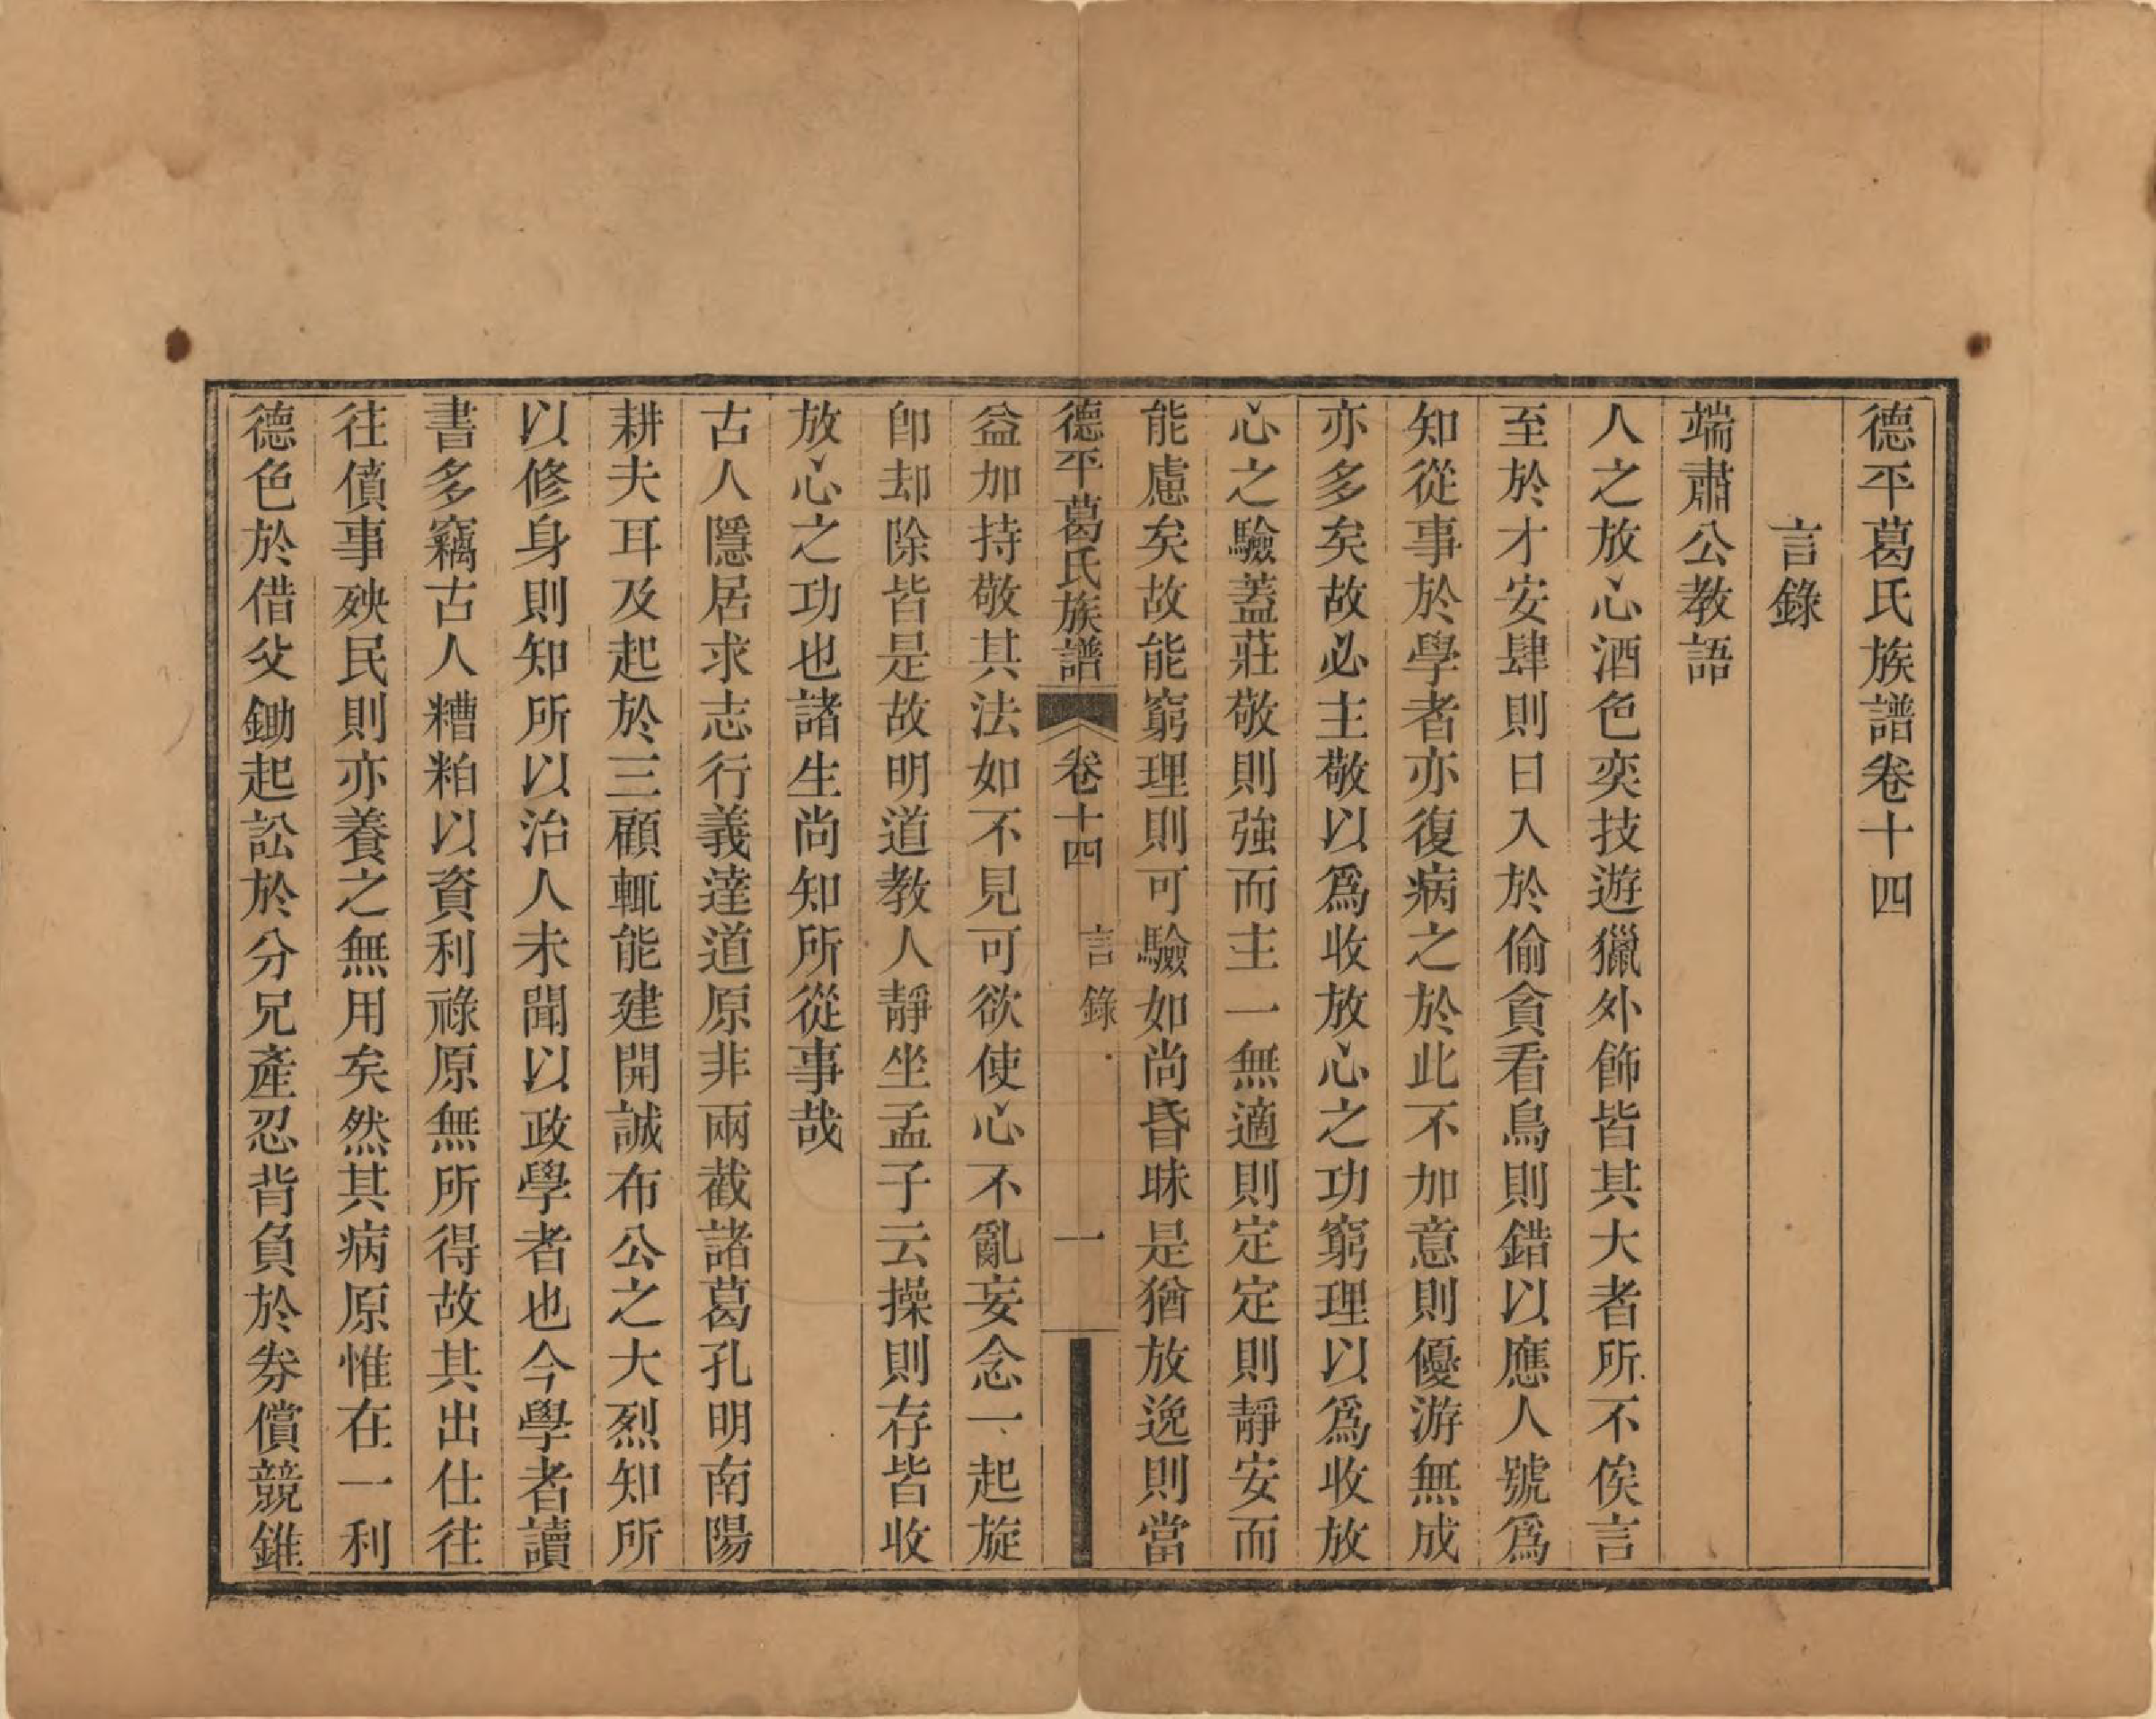 德平葛氏族譜卷十四
言錄
端肅公教語
人之放心酒色奕技遊獵外飾皆其大者所不俟言
至於才安肆則日入於偷貪看鳥則錯以應人號為
知從事於學者亦復病之於此不加意則優游無成
亦多矣故必主敬以為收放心之功窮理以為收放
心之驗蓋莊敬則強而主一無適則定定則靜安而
能慮矣故能窮理則可驗如尚昏昧是猶放逸則當
德平葛氏族譜 卷十四 言錄 一
益加持敬其法如不見可欲使心不亂妄念一起旋
卽却除皆是故明道教人靜坐孟子云操則存皆收
放心之功也諸生尚知所從事哉
古人隱居求志行義達道原非兩截諸葛孔明南陽
耕夫耳及起於三顧輒能建開誠布公之大烈知所
以修身則知所以治人未聞以政學者也今學者讀
書多竊古人糟粕以資利祿原無所得故其出仕往
往僨事殃民則亦養之無用矣然其病原惟在一利
德色於借父鋤起訟於分兄產忍背負於券償競錐